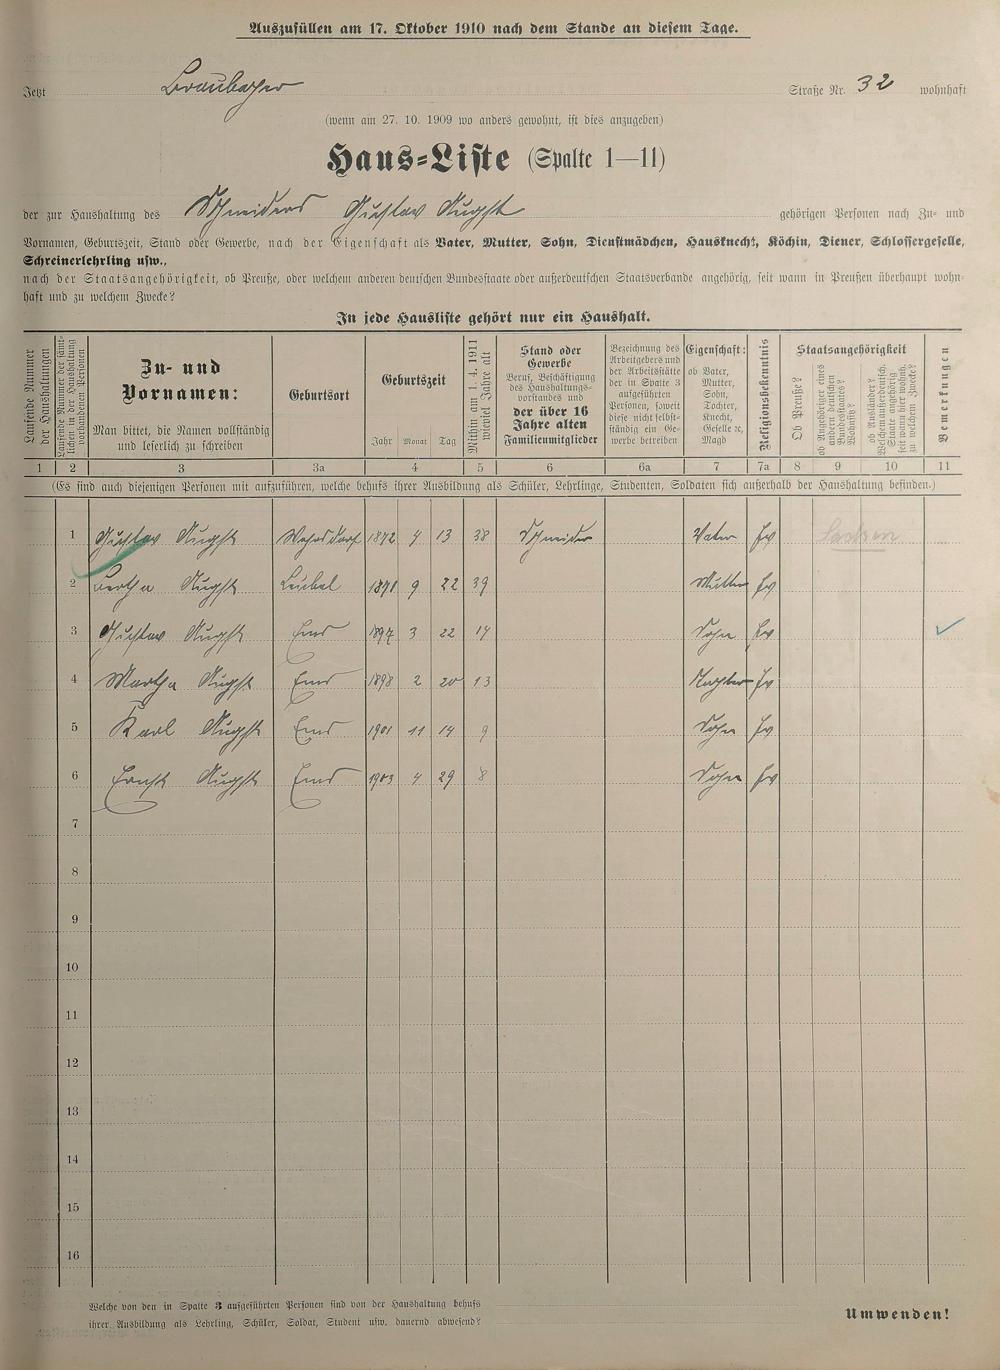 Auszufüllen am 17. Oktober 1910 nach dem Stande an diesem Tage.
Jetzt Braubacher Straße Nr. 32 wohnhaft
(wenn am 27. 10. 1909 wo anders gewohnt, ist dies anzugeben)
Haus-Liste (Spalte 1—11)
der zur Haushaltung des Schneiders Gustav August gehörigen Personen nach Zu- und
Vornamen, Geburtszeit, Stand oder Gewerbe, nach der Eigenschaft als Vater, Mutter, Sohn, Dienstmädchen, Hausknecht, Köchin, Diener, Schlossergeselle,
Schreinerlehrling usw.,
nach der Staatsangehörigkeit, ob Preuße, oder welchem anderen deutschen Bundesstaate oder außerdeutschen Staatsverbande angehörig, seit wann in Preußen überhaupt wohn-
haft und zu welchem Zwecke?
In jede Hausliste gehört nur ein Haushalt.
Laufende Nummer der Haushaltungen
Laufende Nummer der sämtlichen in der Haushaltung vorhandenen Personen
Zu- und
Vornamen:
Man bittet, die Namen vollständig
und leserlich zu schreiben
Geburtsort
Geburtszeit
Jahr Monat Tag
Mithin am 1. 4. 1911 wieviel Jahre alt
Stand oder
Gewerbe
Beruf, Beschäftigung
des Haushaltungs-
vorstandes und
der über 16
Jahre alten
Familienmitglieder
Bezeichnung des
Arbeitgebers und
der Arbeitsstätte
der in Spalte 3
aufgeführten
Personen, soweit
diese nicht selbst-
ständig ein Ge-
werbe betreiben
Eigenschaft:
ob Vater,
Mutter,
Sohn,
Tochter,
Knecht,
Geselle ꝛc,
Magd
Religionsbekenntnis
Staatsangehörigkeit
Ob Preuße?
ob Angehöriger eines andern deutschen Bundesstaates? Wohnsitz?
ob Ausländer? Welchem außerdeutsch. Staate angehörig seit wann hier wohnh. zu welchem Zwecke?
Bemerkungen
1 2 3 3a 4 5 6 6a 7 7a 8 9 10 11
(Es sind auch diejenigen Personen mit aufzuführen, welche behufs ihrer Ausbildung als Schüler, Lehrlinge, Studenten, Soldaten sich außerhalb der Haushaltung befinden.)
1 Gustav August Wehrsdorf 1872 4 13 38 Schneider Vater Ev Sachsen
2 Bertha August Leubel 1871 9 22 39 Mutter Ev
3 Gustav August Ems 1897 3 22 14 Sohn Ev
4 Martha August Ems 1898 2 20 13 Tochter Ev
5 Karl August Ems 1901 11 14 9 Sohn Ev
6 Ernst August Ems 1903 4 29 8 Sohn Ev
7
8
9
10
11
12
13
14
15
16
Welche von den in Spalte 3 aufgeführten Personen sind von der Haushaltung behufs
ihrer Ausbildung als Lehrling, Schüler, Soldat, Student usw. dauernd abwesend?
Umwenden!